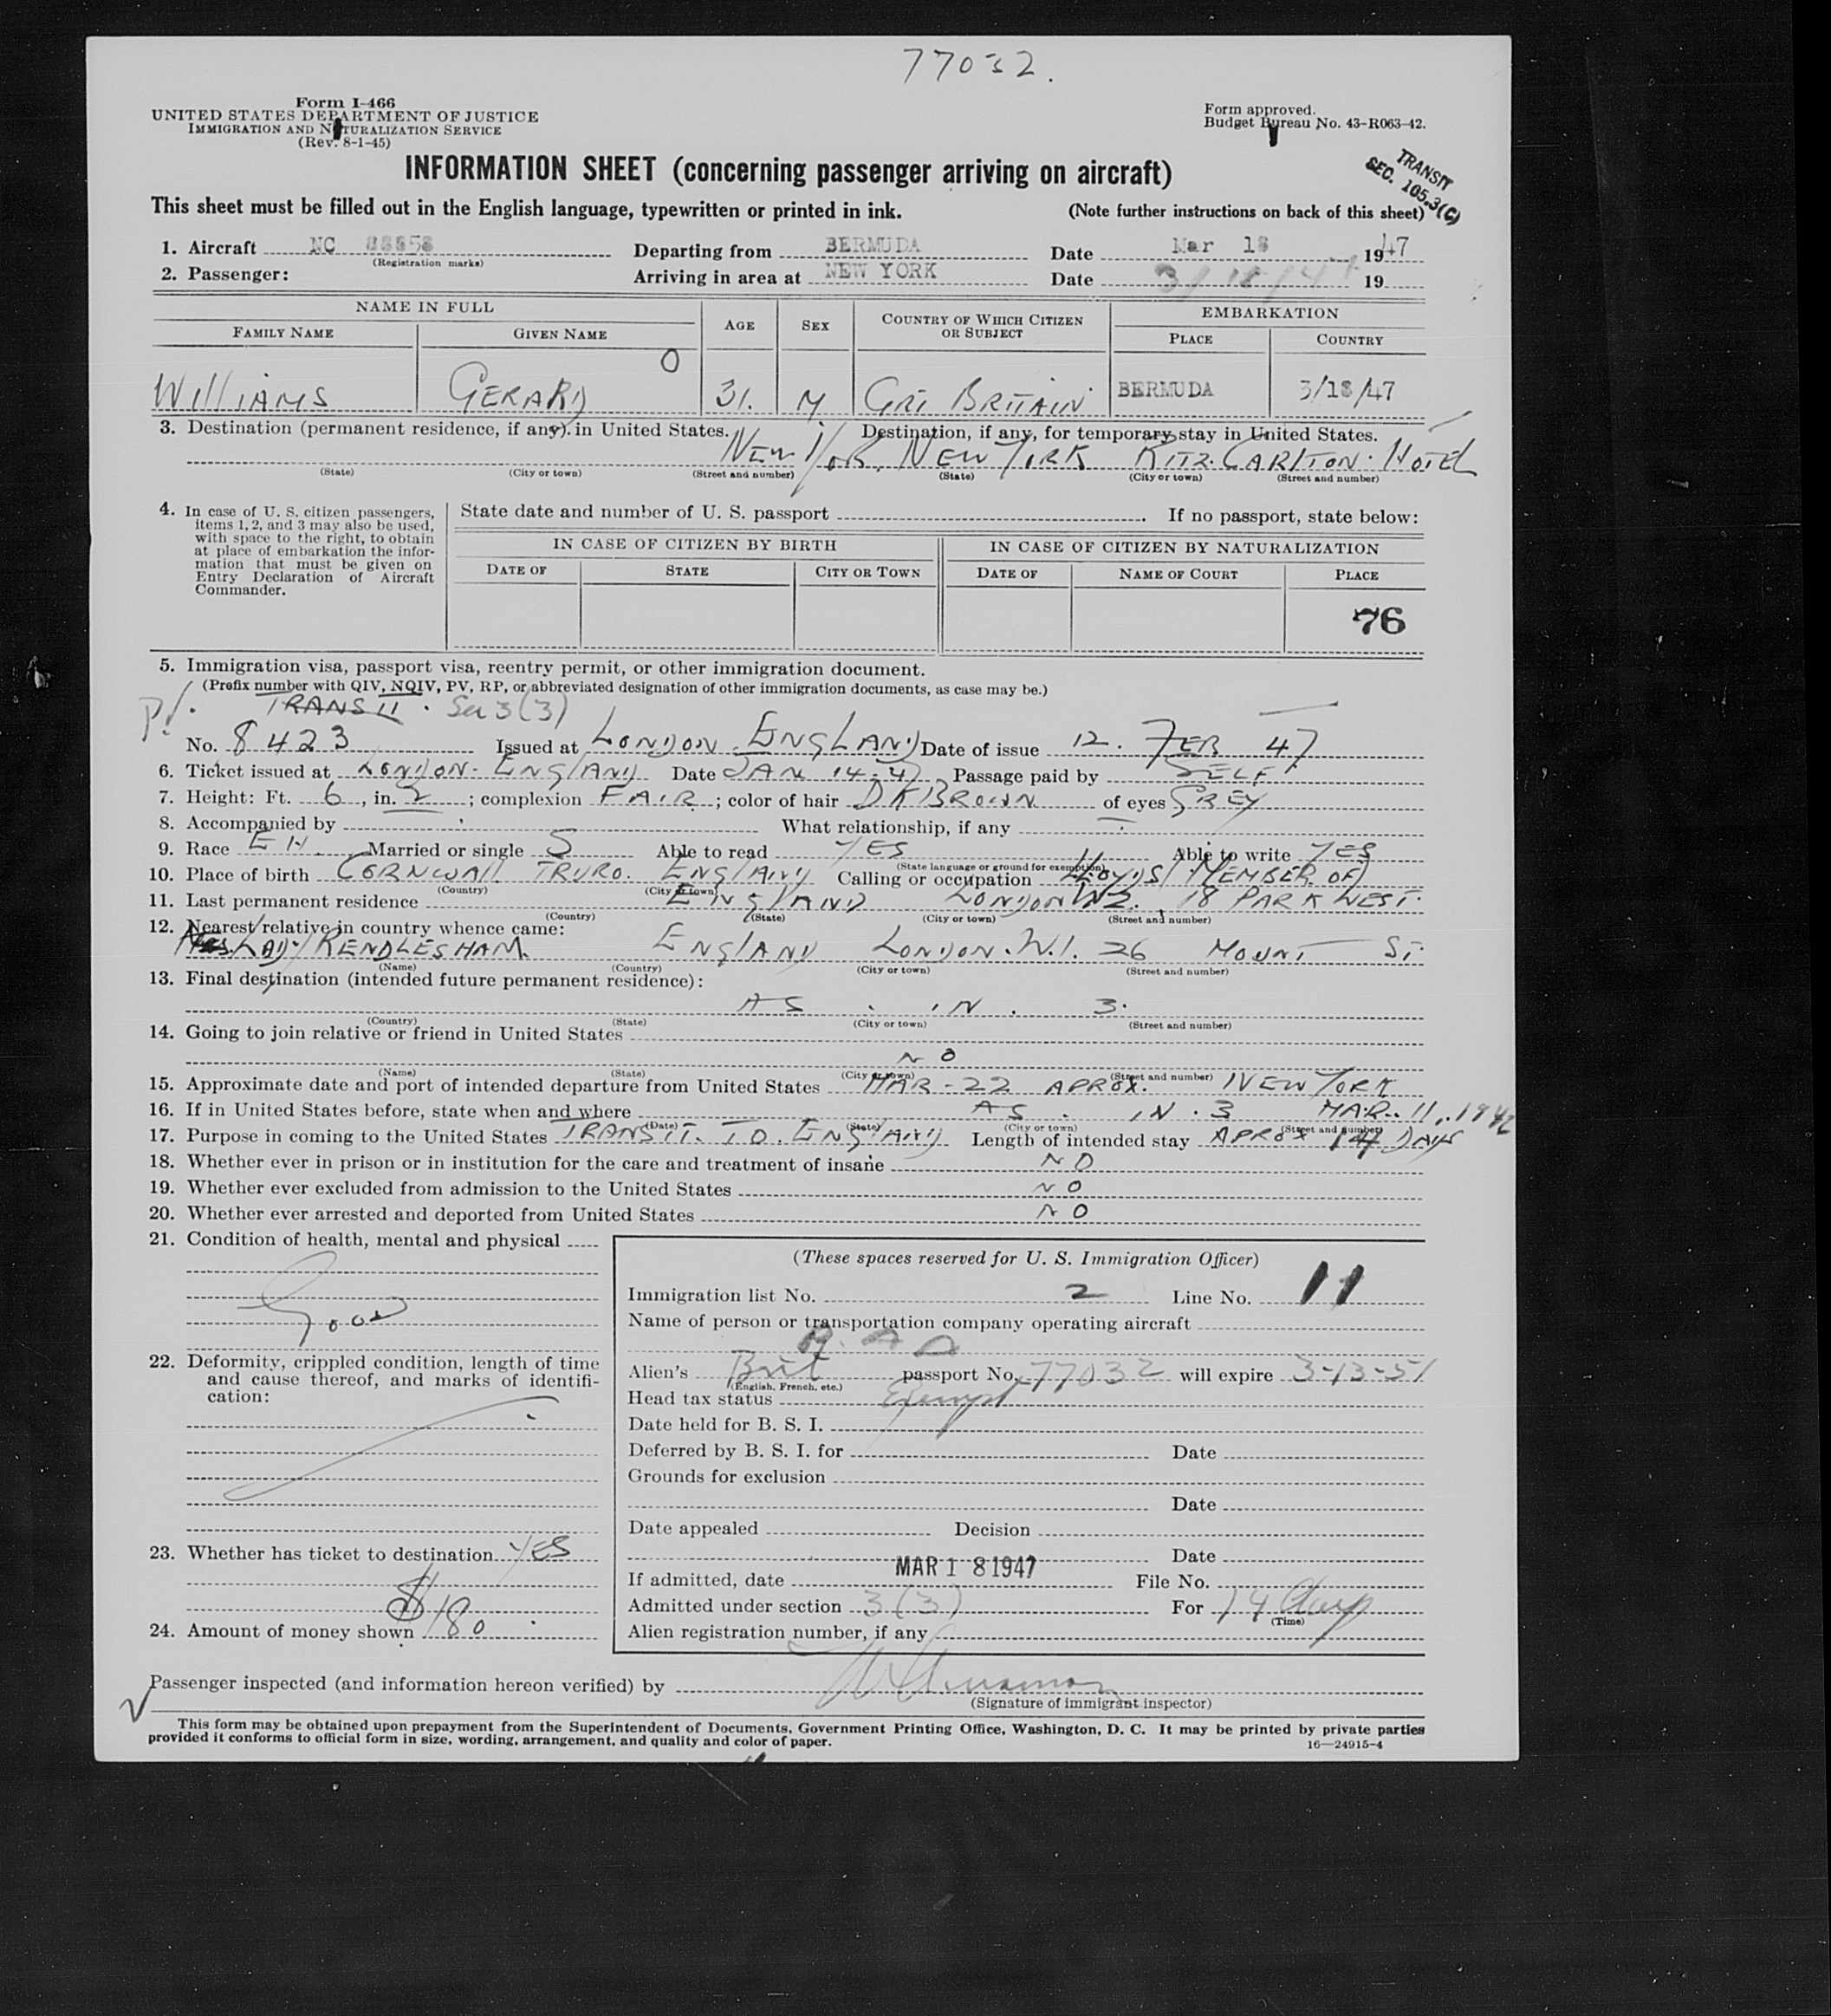 77032.
Form I-466
UNITED STATES DEPARTMENT OF JUSTICE
IMMIGRATION AND NATURALIZATION SERVICE
(Rev. 8-1-45)
Form approved.
Budget Bureau No. 43-R063-42.
TRANSIT
SEC. 105.3(C)
INFORMATION SHEET (concerning passenger arriving on aircraft)
This sheet must be filled out in the English language, typewritten or printed in ink. (Note further instructions on back of this sheet)
1. Aircraft NC 88858 Departing from BERMUDA Date Mar 18 1947
(Registration marks)
2. Passenger: Arriving in area at NEW YORK Date 3/18/47 19
NAME IN FULL AGE SEX COUNTRY OF WHICH CITIZEN OR SUBJECT EMBARKATION
FAMILY NAME GIVEN NAME PLACE COUNTRY
O
WILLIAMS GERARD 31. M GRT BRITAIN BERMUDA 3/18/47
3. Destination (permanent residence, if any) in United States. Destination, if any, for temporary stay in United States.
NEW YOR. NEW YORK RITZ. CARLTON. HOTEL
(State) (City or town) (Street and number) (State) (City or town) (Street and number)
4. In case of U. S. citizen passengers, items 1, 2, and 3 may also be used, with space to the right, to obtain at place of embarkation the information that must be given on Entry Declaration of Aircraft Commander.
State date and number of U. S. passport . If no passport, state below:
IN CASE OF CITIZEN BY BIRTH IN CASE OF CITIZEN BY NATURALIZATION
DATE OF STATE CITY OR TOWN DATE OF NAME OF COURT PLACE
76
5. Immigration visa, passport visa, reentry permit, or other immigration document.
(Prefix number with QIV, NQIV, PV, RP, or abbreviated designation of other immigration documents, as case may be.)
TRANSIT. Sec 3(3)
No. 8423 Issued at LONDON. ENGLAND Date of issue 12. FEB 47
6. Ticket issued at LONDON. ENGLAND Date JAN 14-47 Passage paid by SELF
7. Height: Ft. 6, in. 2; complexion FAIR; color of hair DK BROWN of eyes GREY
8. Accompanied by What relationship, if any
9. Race EN. Married or single S Able to read YES Able to write YES
(State language or ground for exemption)
10. Place of birth CORNWALL TRURO. ENGLAND Calling or occupation LLOYDS / MEMBER OF
(Country) (City or town)
11. Last permanent residence ENGLAND LONDON W2. 18 PARK WEST.
(Country) (State) (City or town) (Street and number)
12. Nearest relative in country whence came:
LADY RENDLESHAM. ENGLAND LONDON. W.1. 26 MOUNT ST.
(Name) (Country) (City or town) (Street and number)
13. Final destination (intended future permanent residence):
AS . IN . 3.
(Country) (State) (City or town) (Street and number)
14. Going to join relative or friend in United States
NO
(Name) (State) (City or town) (Street and number)
15. Approximate date and port of intended departure from United States MAR-22 APROX. NEW YORK
16. If in United States before, state when and where AS . IN . 3 MAR. 11,
(Date) (State) (City or town) (Street and number)
17. Purpose in coming to the United States TRANSIT. TO. ENGLAND Length of intended stay APROX 14 DAYS
18. Whether ever in prison or in institution for the care and treatment of insane NO
19. Whether ever excluded from admission to the United States NO
20. Whether ever arrested and deported from United States NO
21. Condition of health, mental and physical
Good
22. Deformity, crippled condition, length of time and cause thereof, and marks of identification:
23. Whether has ticket to destination YES
24. Amount of money shown $180.
(These spaces reserved for U. S. Immigration Officer)
Immigration list No. 2 Line No. 11
Name of person or transportation company operating aircraft
Alien's Brit passport No. 77032 will expire 3-13-51
(English, French, etc.)
Head tax status Exempt
Date held for B. S. I.
Deferred by B. S. I. for Date
Grounds for exclusion
Date
Date appealed Decision
Date
If admitted, date MAR 18 1947 File No.
Admitted under section 3(3) For 14 days
(Time)
Alien registration number, if any
Passenger inspected (and information hereon verified) by
(Signature of immigrant inspector)
This form may be obtained upon prepayment from the Superintendent of Documents, Government Printing Office, Washington, D. C. It may be printed by private parties
provided it conforms to official form in size, wording, arrangement, and quality and color of paper.
16—24915-4